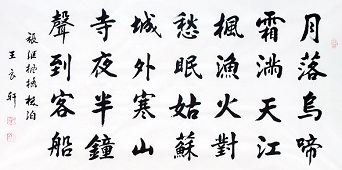 月落烏啼
霜滿天江
楓漁火對
愁眠姑蘇
城外寒山
寺夜半鐘
聲到客船
張継楓橋夜泊
王